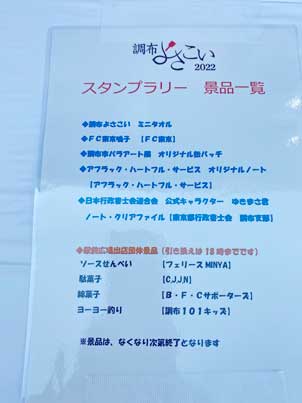 調布よさこい
2022
スタンプラリー　景品一覧
◆調布よさこい　ミニタオル
◆ＦＣ東京鳴子　【ＦＣ東京】
◆調布市パラアート展　オリジナル缶バッチ
◆アフラック・ハートフル・サービス　オリジナルノート
【アフラック・ハートフル・サービス】
◆日本行政書士会連合会　公式キャラクター　ゆきまさ君
ノート・クリアファイル【東京都行政書士会　調布支部】
◆駅前広場出店団体景品（引き換えは18時までです）
ソースせんべい　【フェリーズMINYA】
駄菓子　【C.J.N】
綿菓子　【Ｂ・Ｆ・Ｃサポーターズ】
ヨーヨー釣り　【調布１０１キッズ】
※景品は、なくなり次第終了となります